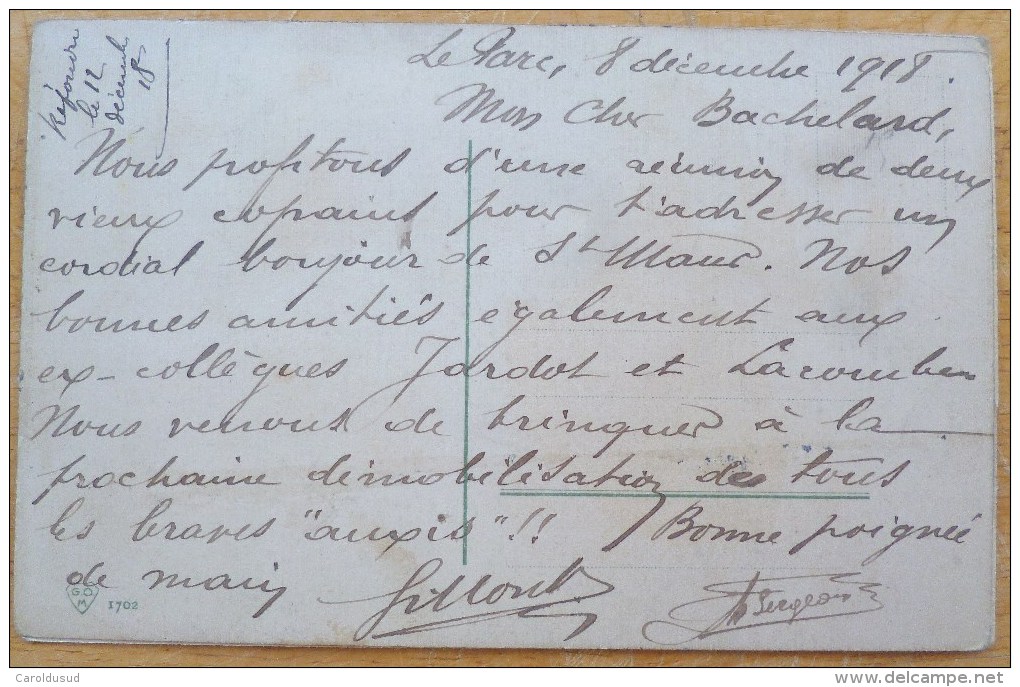 Répondu
le 12
décemb
18
Le Parc, 8 décembre 1918.
Mon Cher Bachelard,
Nous profitons d'une réunion de deux
vieux copains pour t'adresser un
cordial bonjour de St Maur. Nos
bonnes amitiés également aux
ex-collègues Jardot et Lacombe
Nous venons de trinquer à la
prochaine démobilisation des tous
les braves "auxis"!! Bonne poignée
de main
G.D
M
1702
Caroldusud
delcampe.net